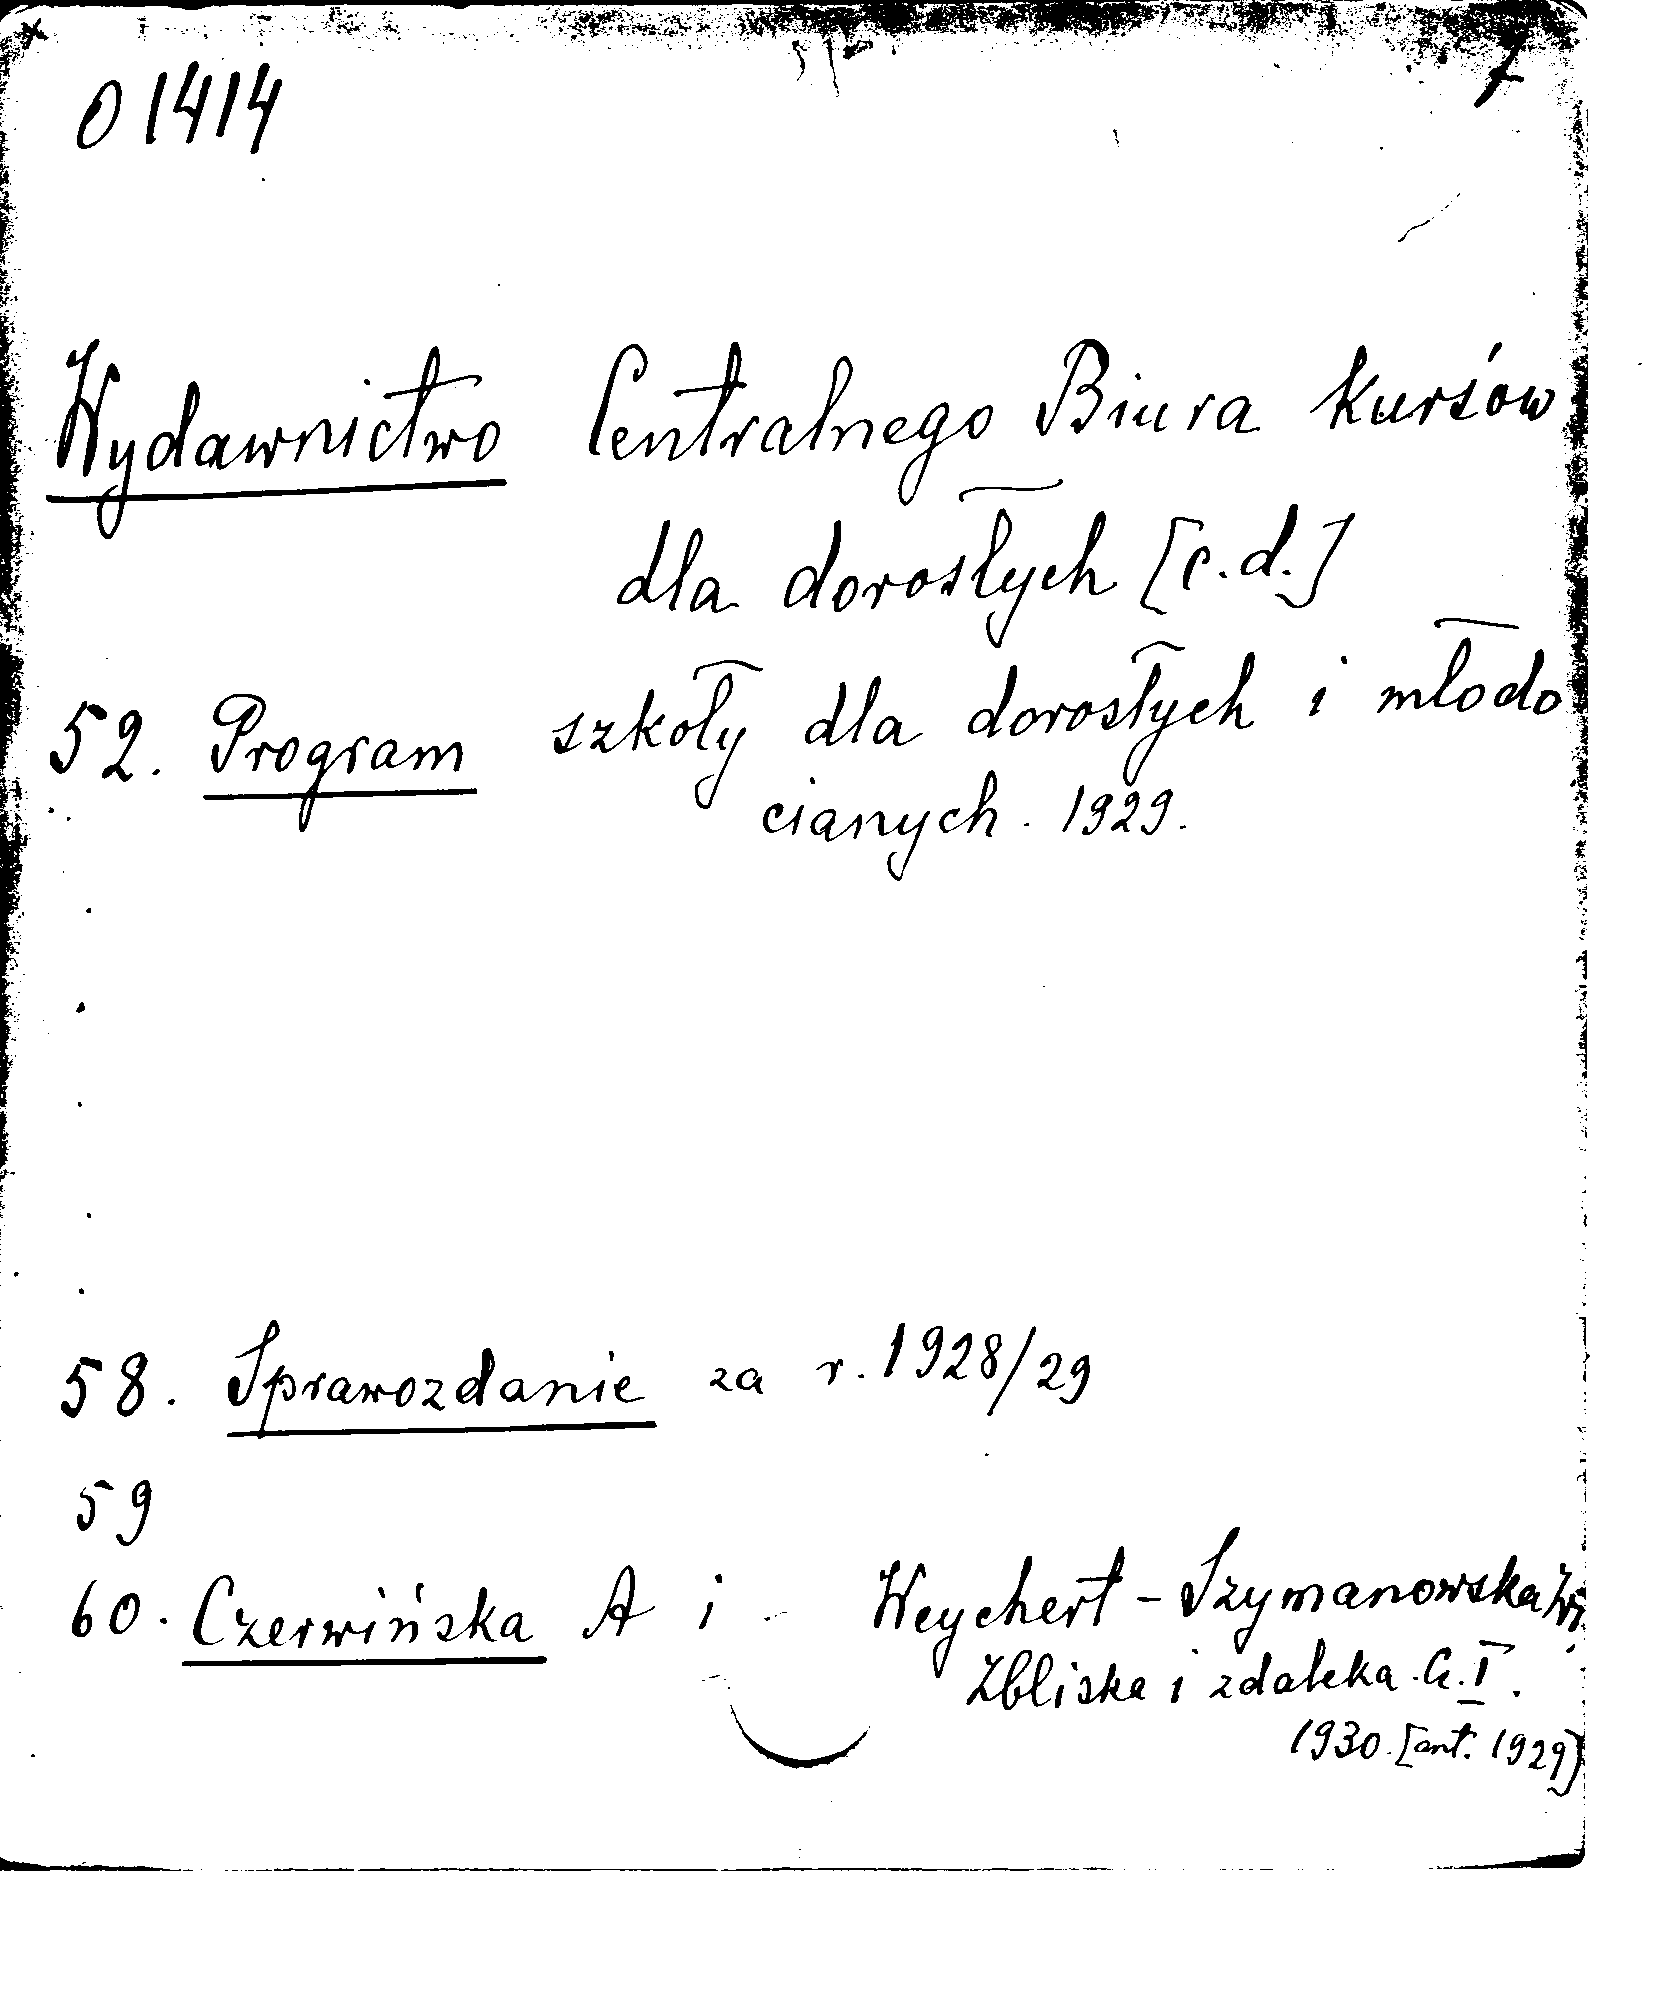 01414
Wydawnictwo Centralnego Biura kursów
dla dorosłych [c.d.]
52. Program szkoły dla dorosłych i młodo
cianych. 1929.
58. Sprawozdanie za r. 1928/29
59
60. Czerwińska A i Weychert-Szymanowska
Zbliska i zdaleka. Cz. I.
1930. [ant. 1929]